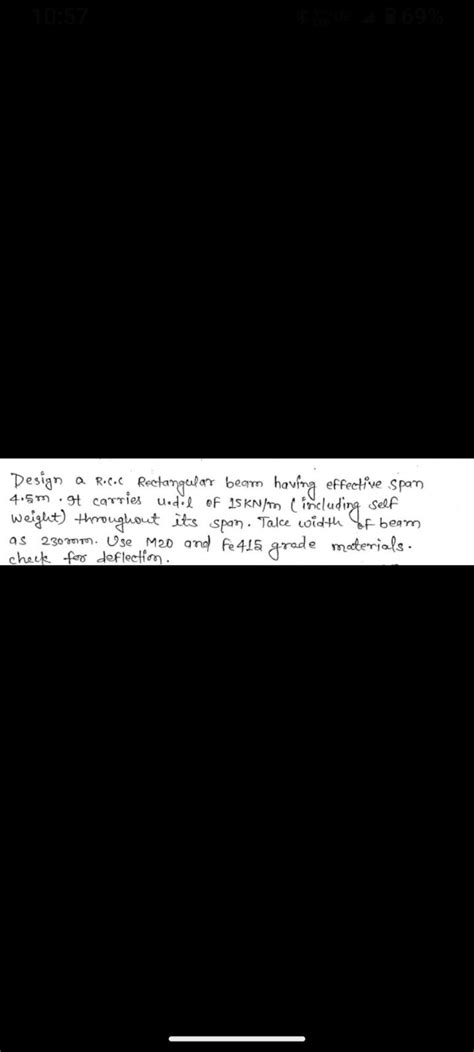 10:57
69%
Design a R.C.C Rectangular beam having effective span
4.5m . It carries u.d.l of 15KN/m (including self
weight) throughout its span. Take width of beam
as 230mm. Use M20 and Fe415 grade materials.
check for deflection.